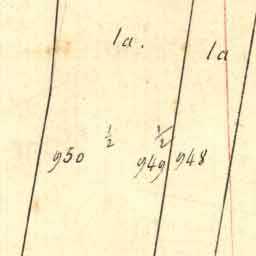 1a.
1a
½
½
950
949
948